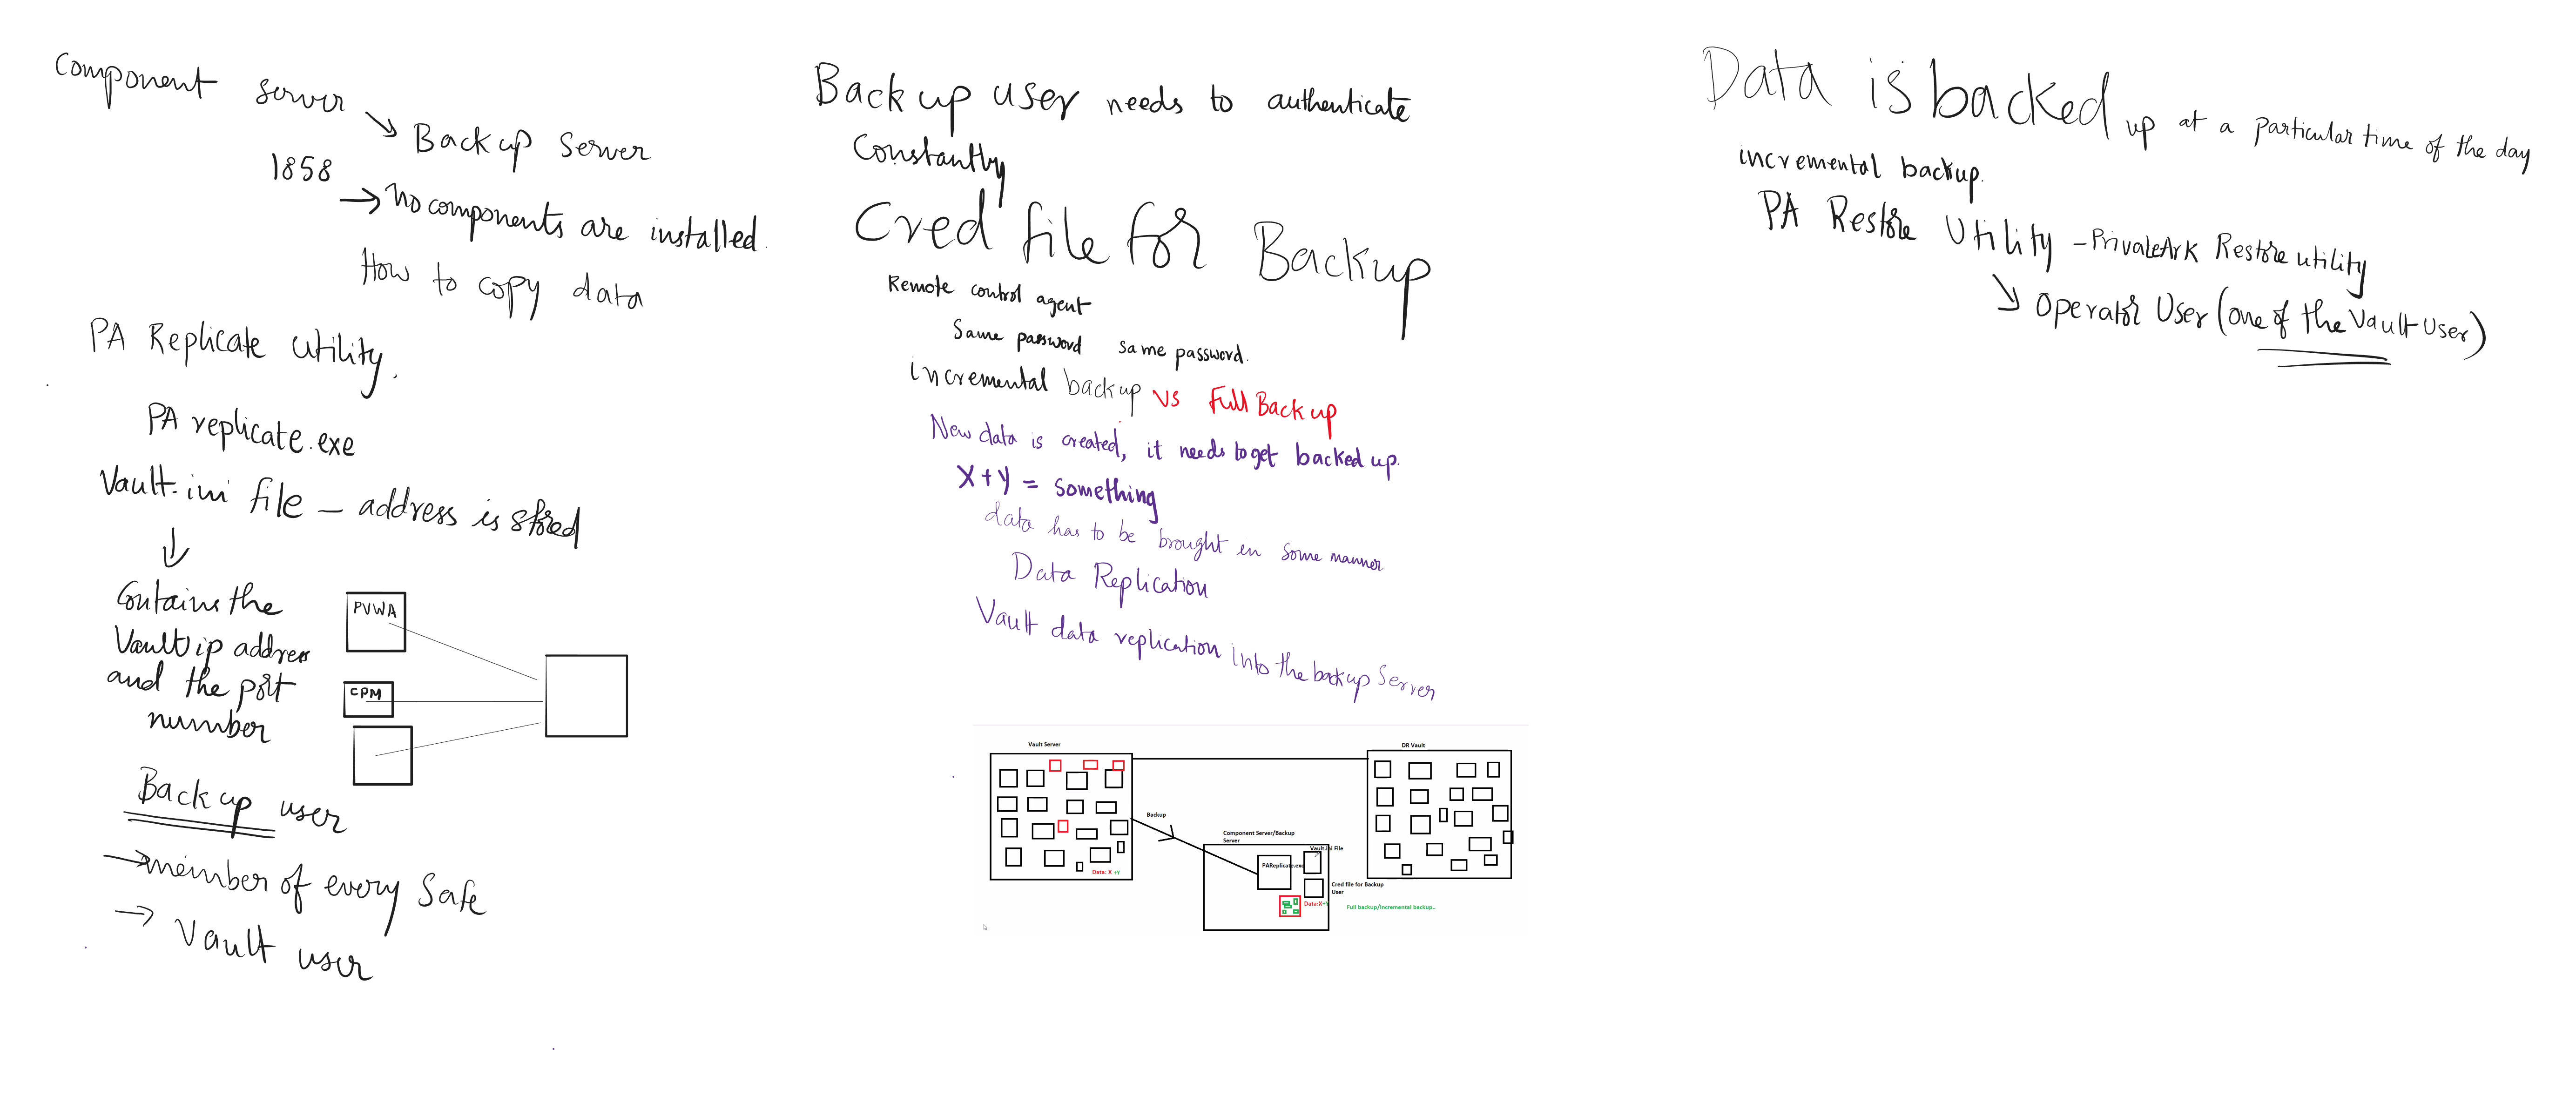 Component server
Backup Server
1858
no components are installed.
How to copy data
PA Replicate utility.
PA replicate.exe
Vault.ini file - address is stored
Contains the
Vault ip address
and the port
number
PVWA
CPM
Backup user
member of every Safe
Vault user
Backup user needs to authenticate
Constantly
Cred file for Backup
Remote control agent
Same password same password.
incremental backup vs Full Backup
New data is created, it needs to get backed up.
X+Y = something
data has to be brought in some manner
Data Replication
Vault data replication into the backup Server
Vault Server
DR Vault
Backup
Component Server/Backup
Server
Vault.ini File
PAReplicate.exe
Cred file for Backup
User
Data: X +Y
Data:X+Y
Full backup/Incremental backup..
Data is backed up at a particular time of the day
incremental backup.
PA Restore Utility - PrivateArk Restore utility
Operator User (one of the Vault User)